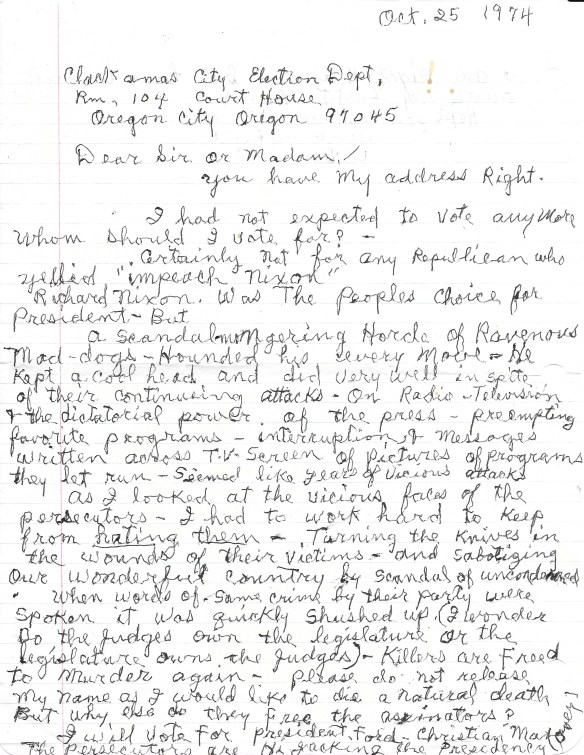 Oct. 25 1974
Clackamas City Election Dept,
Rm, 104 Court House
Oregon City Oregon 97045
Dear Sir or Madam,
you have my address Right.
I had not expected to vote any More
Whom should I vote for? -
Certainly Not for any Republican who
yelled "impeach Nixon"
Richard Nixon. Was The Peoples Choice for
President - But
a Scandal-moNgering Horde of Ravenous
Mad-dogs - Hounded his every Move - He
Kept a cool head and did very well in spite
of their continusing attacks - On Radio - Television
& the dictatorial power of the press - preempting
favorite programs - interruption, & Messages
written across T.V. Screen of Pictures of programs
they let run - Seemed like years of Vicious attacks
as I looked at the vicious faces of the
persecutors - I had to work hard to Keep
from hating them - Turning the Knives in
the wounds of their victims - and Sabotizing
Our Wonderful Country by Scandal of
. When words of same crime by their party were
Spoken it was quickly shushed up. (I wonder
Do the Judges own the legislature or the
legislature owns the Judges) - Killers are Freed
to Murder again - please do not release
My name as I would like to die a natural death
But why else do they Free the assinators?
I will Vote For president Ford - Christian Man
The Persecutors are Hi Jacking the Presidency
(over)